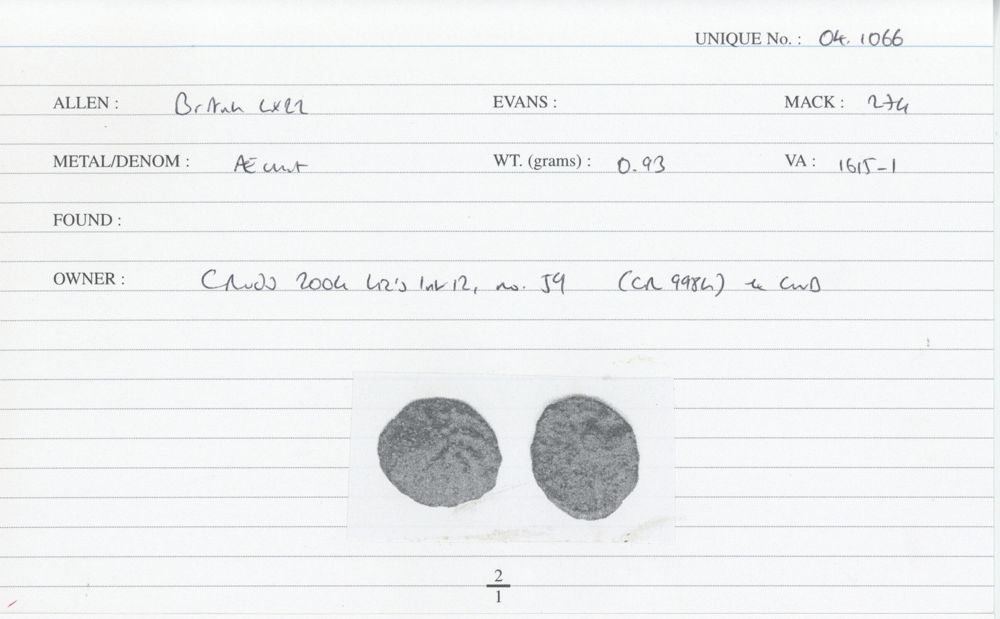 UNIQUE No. : 04.1066
ALLEN : British LX22 EVANS : MACK : 274
METAL/DENOM : Æ unit WT. (grams) : 0.93 VA : 1615-1
FOUND :
OWNER : 2004 12, no. 59 (CR 994)
2
1